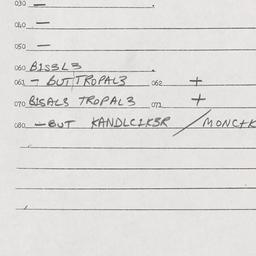 030 —
040 —
050 —
060 BISSL3
061 — BUT TROPAL3 062 +
070 BISALS TROPAL3 071 +
080 — BUT KANDLCIKSR / MONCIK